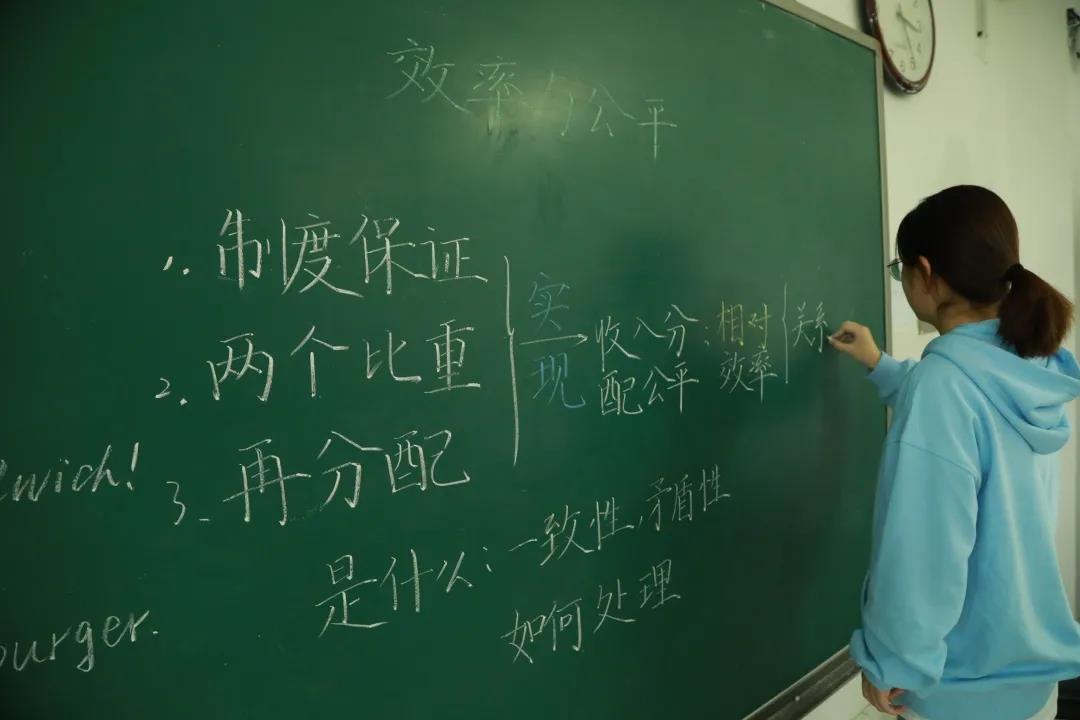 效率与公平
1. 制度保证
2. 两个比重
3. 再分配
实现
收入分配公平:
相对效率
关系
wich!
burger.
是什么: 一致性,矛盾性
如何处理